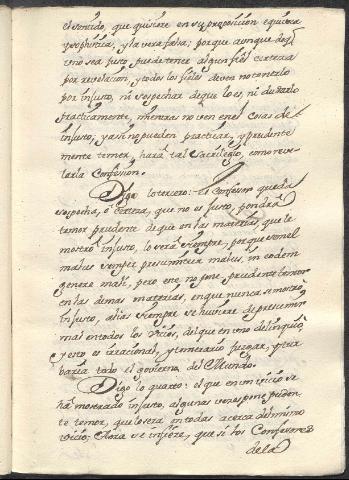 el sentido, que quisiere en su proposicion equivoca
y sophistica, y la vera falsa; porque aunque de q̃
uno sea justo puede tener algun fiel certeza
por revelacion, y todos los fieles deven no tenerlo
por injusto, ni sospechar de que lo es, ni dudarlo
practicamente, mientras no ven en el cosas de
injusto; y assi no pueden practicar, y prudente
mente temer, hará tal sacrilegio, como reve-
lar la Confesion.
Digo lo tercero: el Confesor que da
sospecha, o certeza, que no es justo, pondrá
temor prudente de que en las materias, que le
mostró injusto, lo será siempre, porque semel
malus semper presumitur malus, in eodem
genere mali, pero esto no pone prudente temor
en las demas materias, en que nunca se mostró
injusto, alias siempre se huviere de presumir
mal en todos los vicios, del que en uno delinquió,
y esto es irracional, y temerario juzgar, y tur
baria todo el govierno del Mundo.
Digo lo quarto: el que en un vicio se
há mostrado injusto, algunas veces pone puden-
te temor, que lo será en todas acerca del mismo
vicio; Ahora se infiere, que si los Confesores
de la